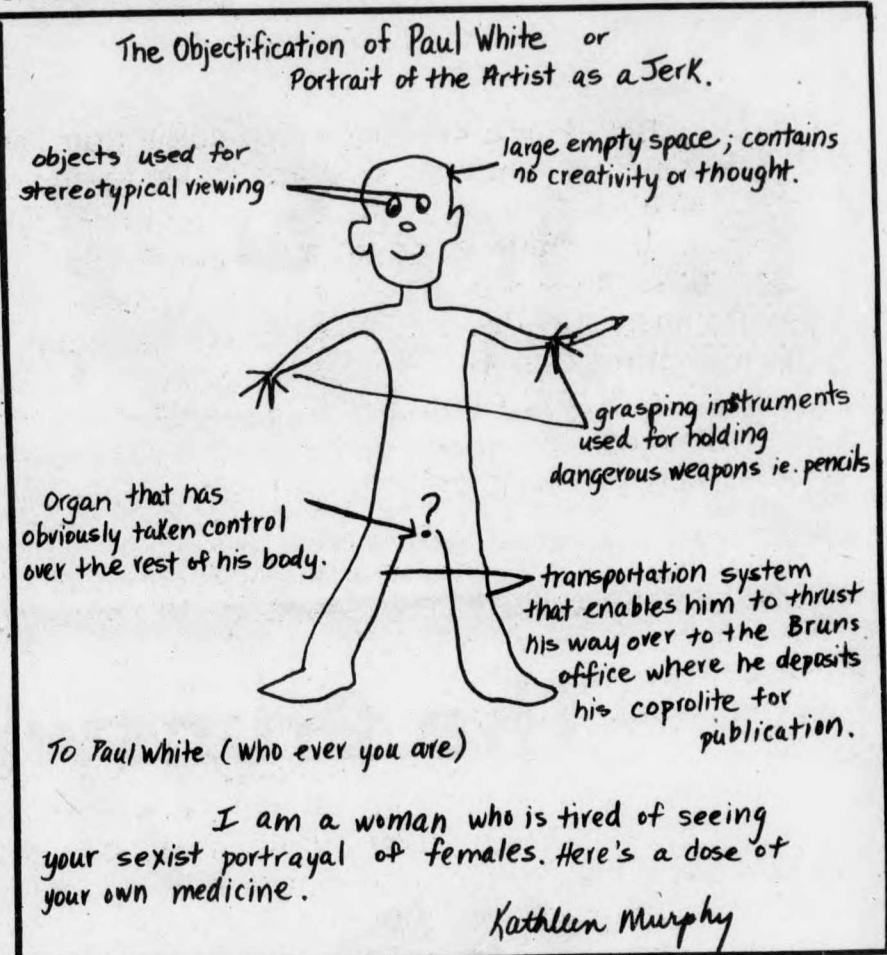 The Objectification of Paul White or
Portrait of the Artist as a Jerk.
objects used for
stereotypical viewing
large empty space; contains
no creativity or thought.
grasping instruments
used for holding
dangerous weapons ie. pencils
Organ that has
obviously taken control
over the rest of his body.
?
transportation system
that enables him to thrust
his way over to the Bruns
office where he deposits
his coprolite for
publication.
To Paul White (Who ever you are)
I am a woman who is tired of seeing
your sexist portrayal of females. Here's a dose of
your own medicine.
Kathleen Murphy